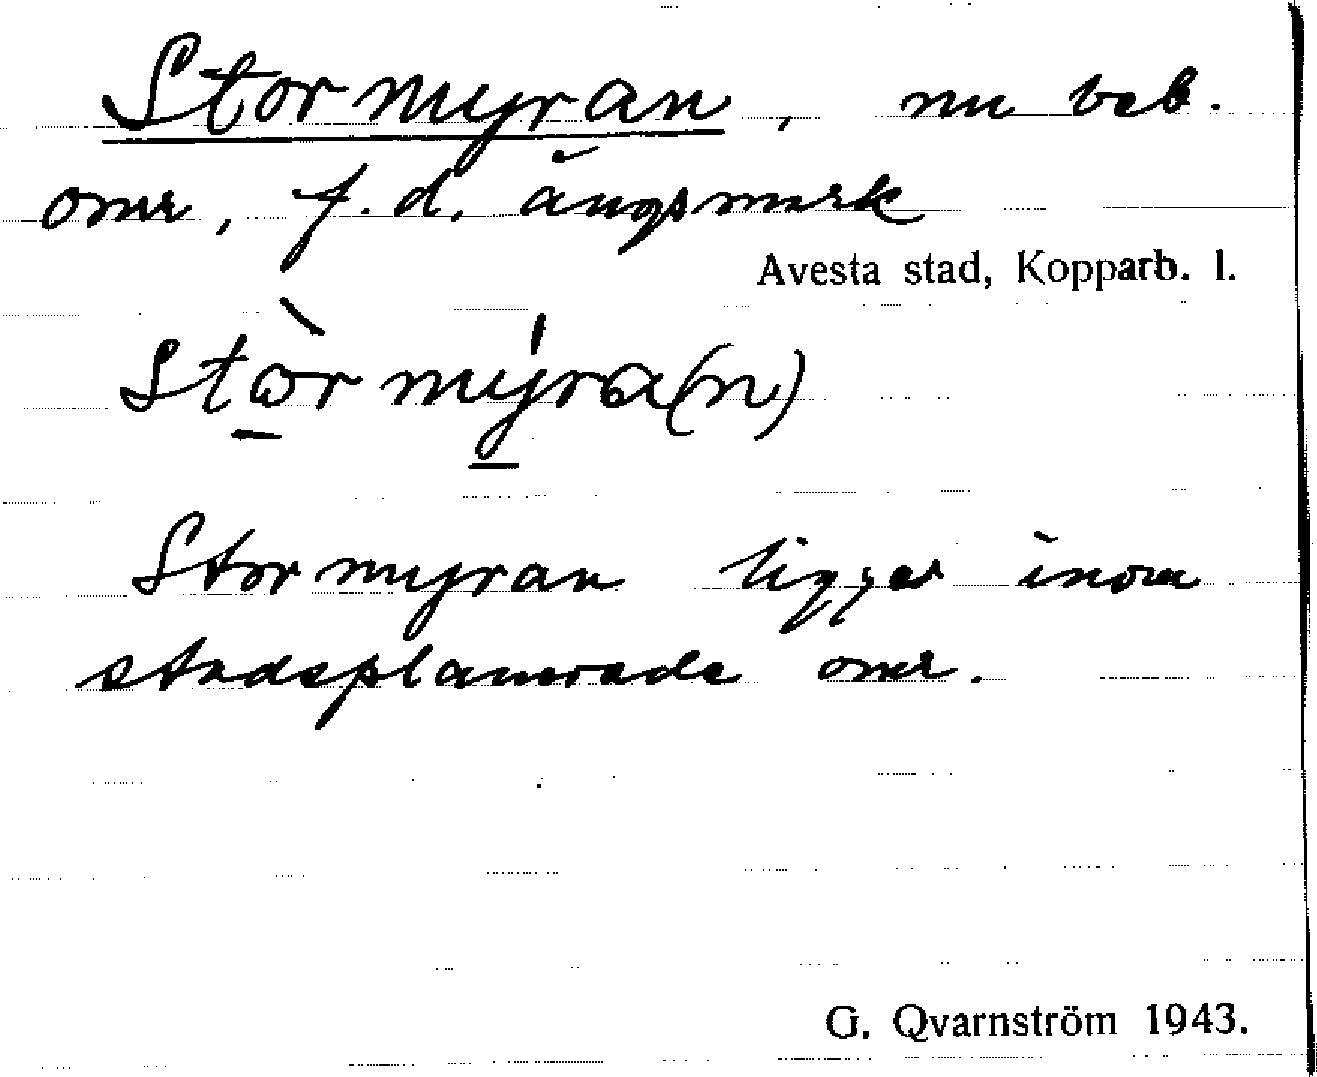 Stormyran, nu beb.
omr, f. d. ängsmark
Avesta stad, Kopparb. l.
stòrmýra(n)
Stormyran ligger inom
stadsplanerade omr.
G. Qvarnström 1943.